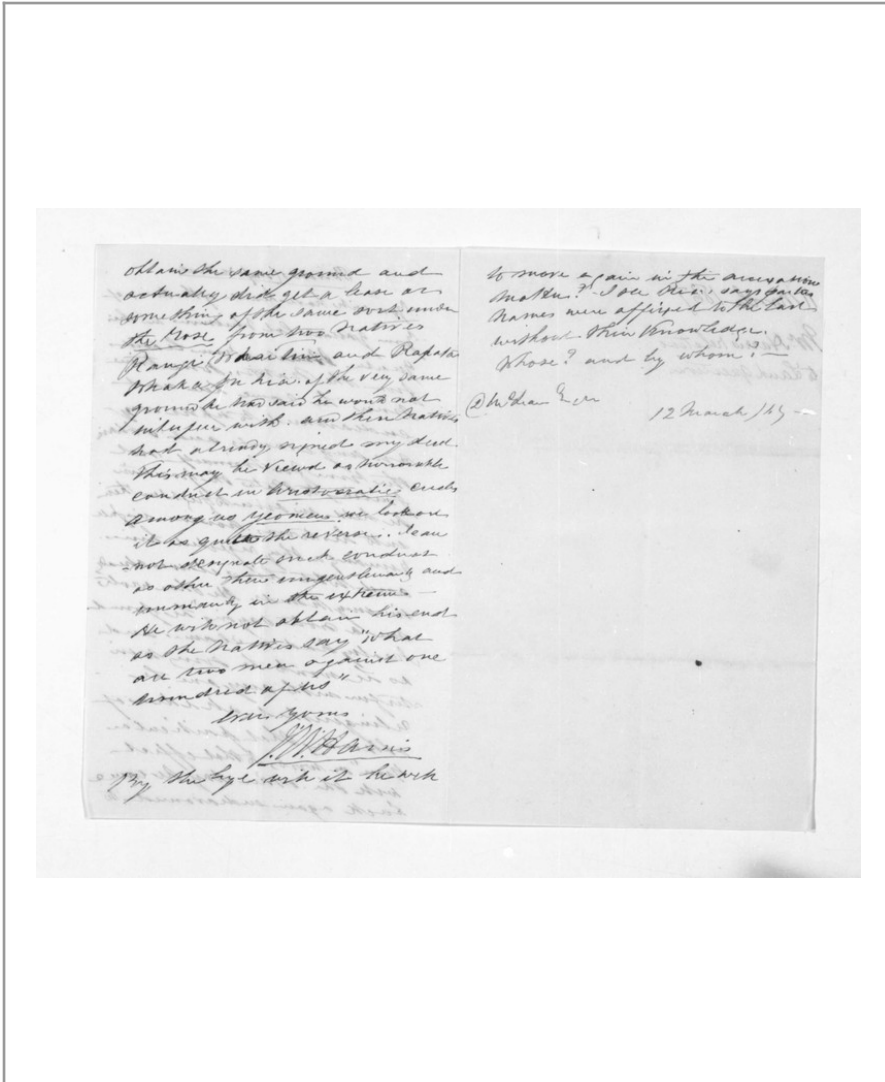 obtain the same ground and
actually did get a lease or
something of the same sort under
the Rose from two natives
Rangi and Rapata
Whaka of the very same
ground he had said he would not
interfere with. and these Natives
had already signed my deed
This may be viewed as honorable
conduct in Aristocratic circles
among us yeomen we look on
it as quite the reverse. I can
not designate such conduct
as other than ungentlemanly and
unmanly in the extreme
He will not obtain his end
as the Natives say "what
are two men against one
hundred of us"
ever yours
J.W. Harris
By the bye will it be well
to move again in the accusation
matter? I see says
names were affixed to the last
without their knowledge.
Whose? and by whom?
D McLean Esqr
12 March /69